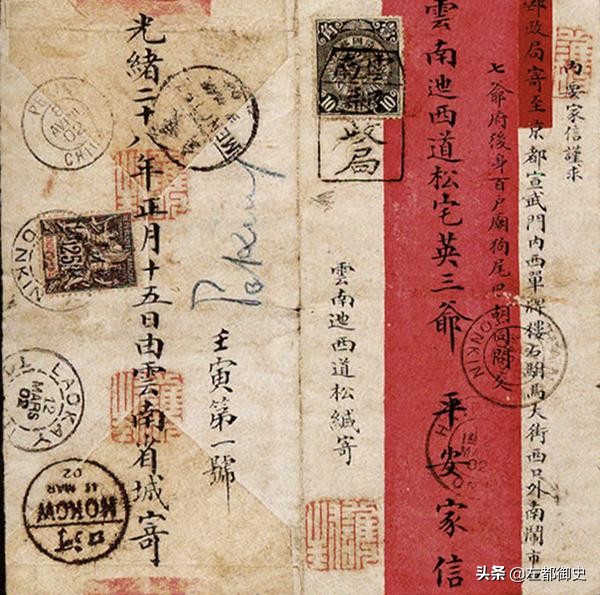 內要家信謹求
郵政局寄至京都宣武門內西單牌樓石駙馬大街西口外南鬧市
七爺府後身百戶廟狗尾巴胡同問交
雲南迆西道松宅英三爺 平安家信
雲南迆西道松緘寄
壬寅第一號
光緒二十八年正月十五日由雲南省城寄
10
10
雲南
政局
Peking
02
CHINE
25
TONKIN
LAOKAY
12
MARS
02
河口
HOKOW
13 MAR
02
TONKIN
头条 @左都御史